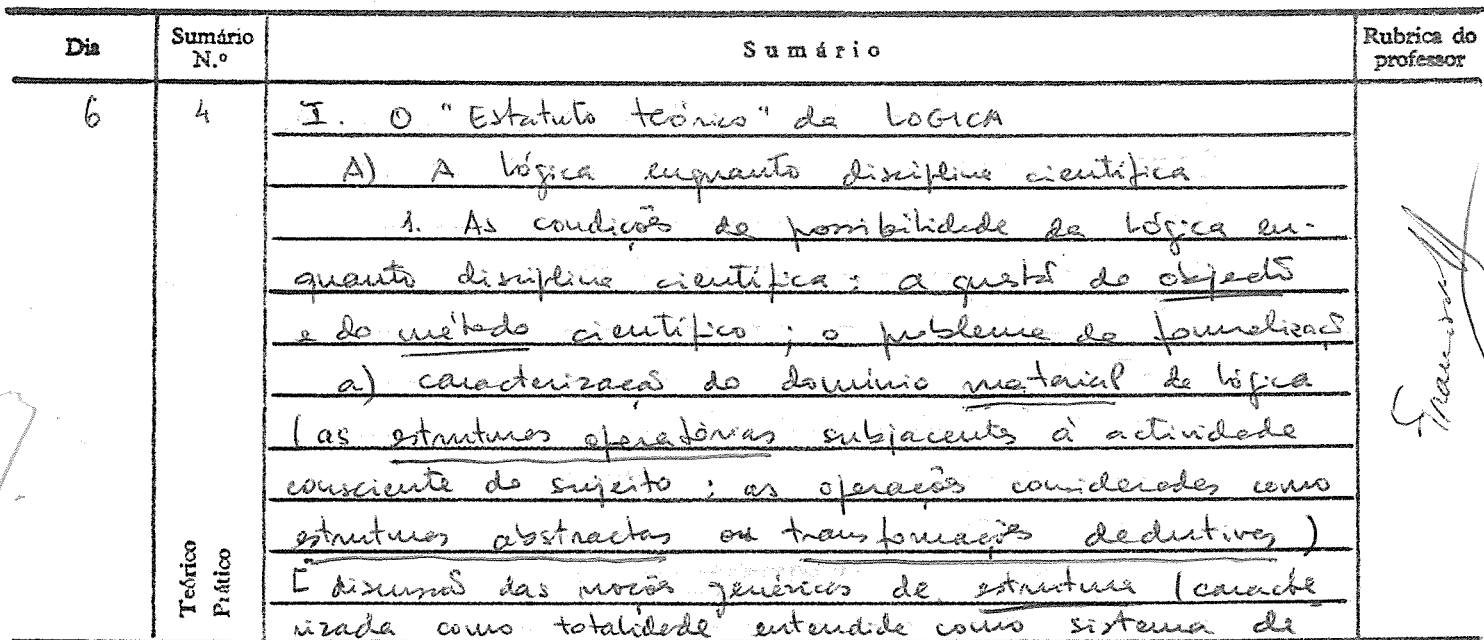 Dia Sumário N.º Sumário Rubrica do professor
6 4 I. O "Estatuto teórico" da LOGICA
A) A lógica enquanto disciplina científica
1. As condições de possibilidade da lógica en-
quanto disciplina científica: a questão do objecto
e do método científico; o problema da formalização
a) caracterização do domínio material da lógica
(as estruturas operatórias subjacentes à actividade
consciente do sujeito; as operações consideradas como
estruturas abstractas ou transformações dedutivas)
Teórico Prático [discussão das noções genéricas de estrutura (caracte
rizada como totalidade entendida como sistema de